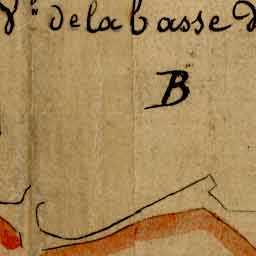 de la basse
B